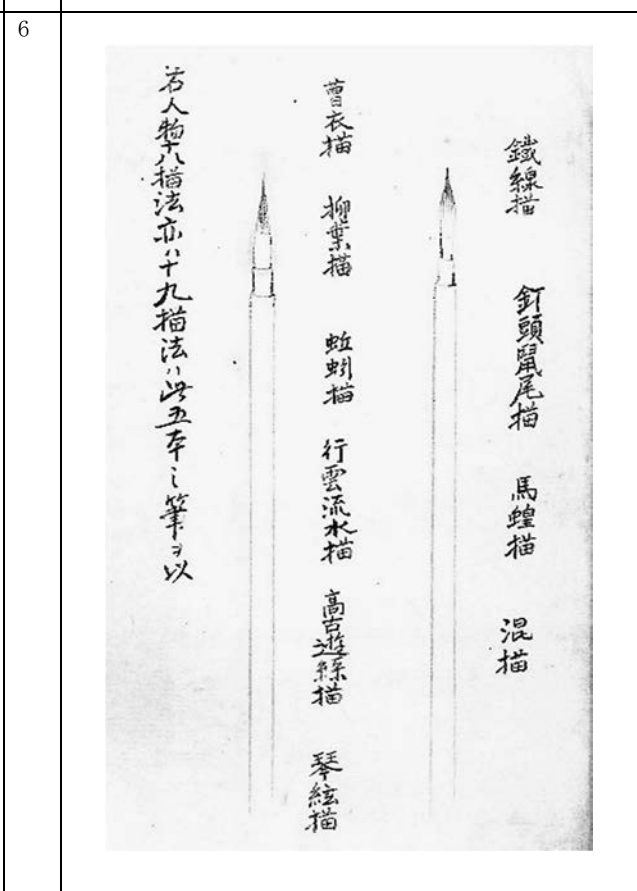 6
鐵線描 釘頭鼠尾描 馬蝗描 混描
曹衣描 柳葉描 蚯蚓描 行雲流水描 高古遊絲描 琴絃描
右人物十八描法亦ハ十九描法ハ此五本ノ筆ヲ以